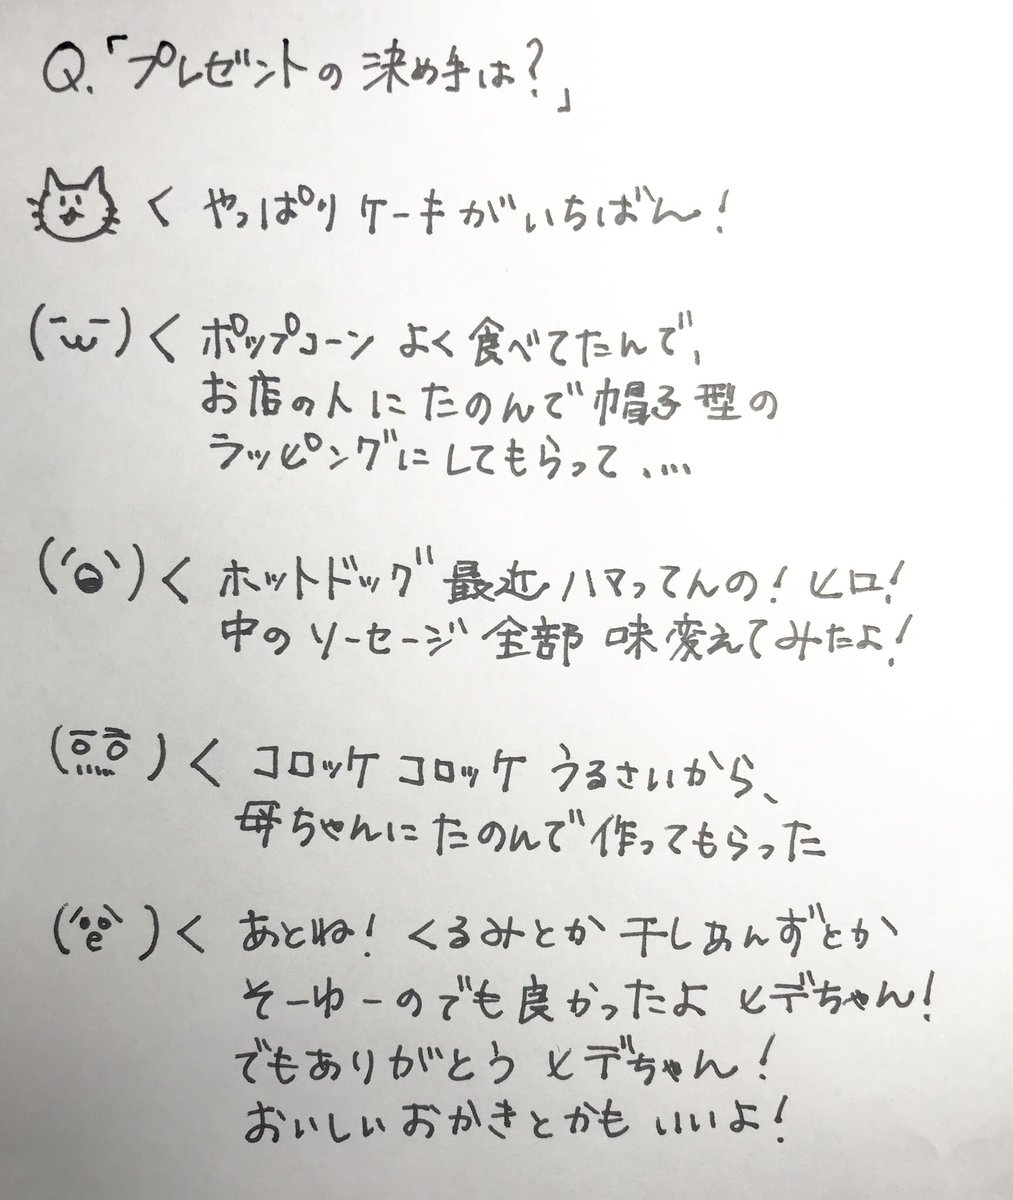 Q.「プレゼントの決め手は?」
く やっぱりケーキがいちばん!
く ポップコーン よく食べてたんで、
お店の人にたのんで帽子型の
ラッピングにしてもらって、…
く ホットドッグ 最近ハマってんの! ヒロ!
中のソーセージ全部 味変えてみたよ!
く コロッケ コロッケ うるさいから、
母ちゃんにたのんで作ってもらった
く あとね! くるみとか 干しあんずとか
そーゆーのでも良かったよ ヒデちゃん!
でもありがとう ヒデちゃん!
おいしいおかきとかも いいよ!